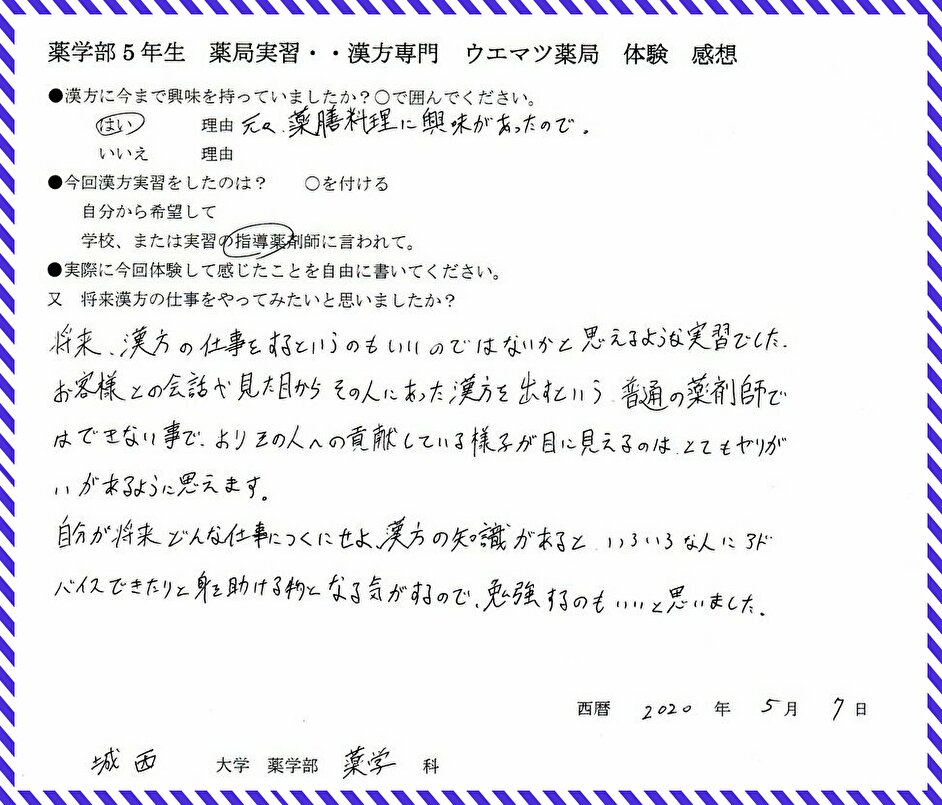 薬学部5年生 薬局実習・・漢方専門 ウエマツ薬局 体験 感想
●漢方に今まで興味を持っていましたか？○で囲んでください。
はい 理由 元々、薬膳料理に興味があったので。
いいえ 理由
●今回漢方実習をしたのは？ ○を付ける
自分から希望して
学校、または実習の指導薬剤師に言われて。
●実際に今回体験して感じたことを自由に書いてください。
又 将来漢方の仕事をやってみたいと思いましたか？
将来、漢方の仕事をするというのもいいのではないかと思えるような実習でした。
お客様との会話や見た目からその人にあった漢方を出すという、普通の薬剤師で
はできない事で、よりその人への貢献している様子が目に見えるのは、とてもヤリが
いがあるように思えます。
自分が将来どんな仕事につくにせよ、漢方の知識があると、いろいろな人にアド
バイスできたりと身を助ける物となる気がするので、勉強するのもいいと思いました。
西暦 2020 年 5月 7日
城西 大学 薬学部 薬学 科